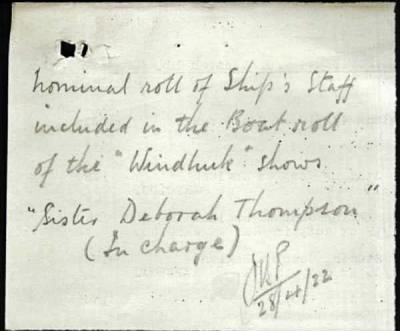 nominal roll of Ship's Staff
included in the Boat roll
of the "Windhuk" shows
"Sister Deborah Thompson"
(In charge)
28/4/22